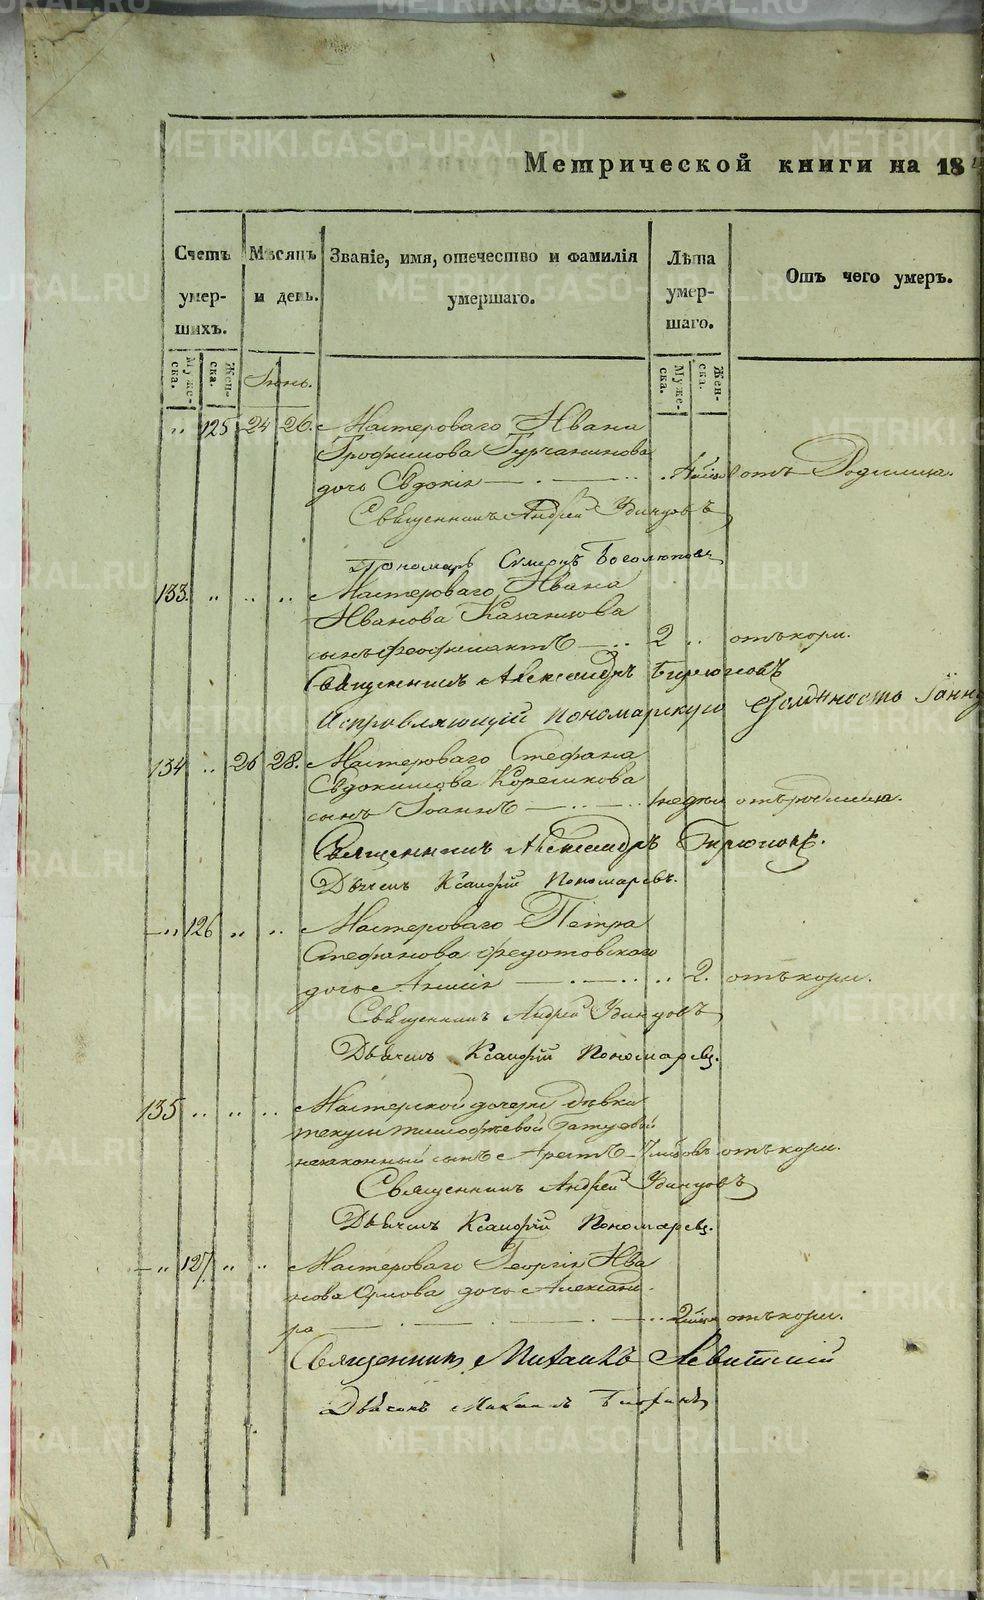 METRIKI.GASO-URAL.RU
Метрической книги на 18
Счетъ умерших.
Мѣсяцъ и день.
Званіе, имя, отечество и фамилія умершаго.
Лѣта умершаго.
Отъ чего умеръ.
Мужеска.
Женска.
Мужеска.
Женска.
Іюнь.
.. 125 24 26. Мастероваго Ивана
Трофимова Турчанинова
дочь Евдокія отъ Родимца.
Священникъ Андрей Удинцовъ
Пономарь Симеонъ Боголюповъ
133. .. .. .. Мастероваго Ивана
Иванова Казанцова
сынъ Феофилактъ 2 .. отъ кори.
Священникъ Александръ Бирюковъ
Исправляющій пономарскую должность
134 .. 26 28. Мастероваго Стефана
Евдокимова Корешкова
сынъ Іоаннъ недѣли отъ родимца.
Священникъ Александръ Бирюковъ.
Дьячекъ Ксанфій Пономаревъ.
.. 126 .. .. Мастероваго Петра
Стефанова Федотовскаго
дочь .. 2. отъ кори.
Священникъ Андрей Удинцовъ
Дьячекъ Ксанфій Пономаревъ.
135 .. .. .. Мастерской дочери дѣвки
незаконный сынъ отъ кори.
Священникъ Андрей Удинцовъ
Дьячекъ Ксанфій Пономаревъ.
.. 127. .. .. Мастероваго Георгія Ива
нова Орлова дочь Александ
ра отъ кори.
Священникъ Михаилъ Левитскій
Дьячекъ